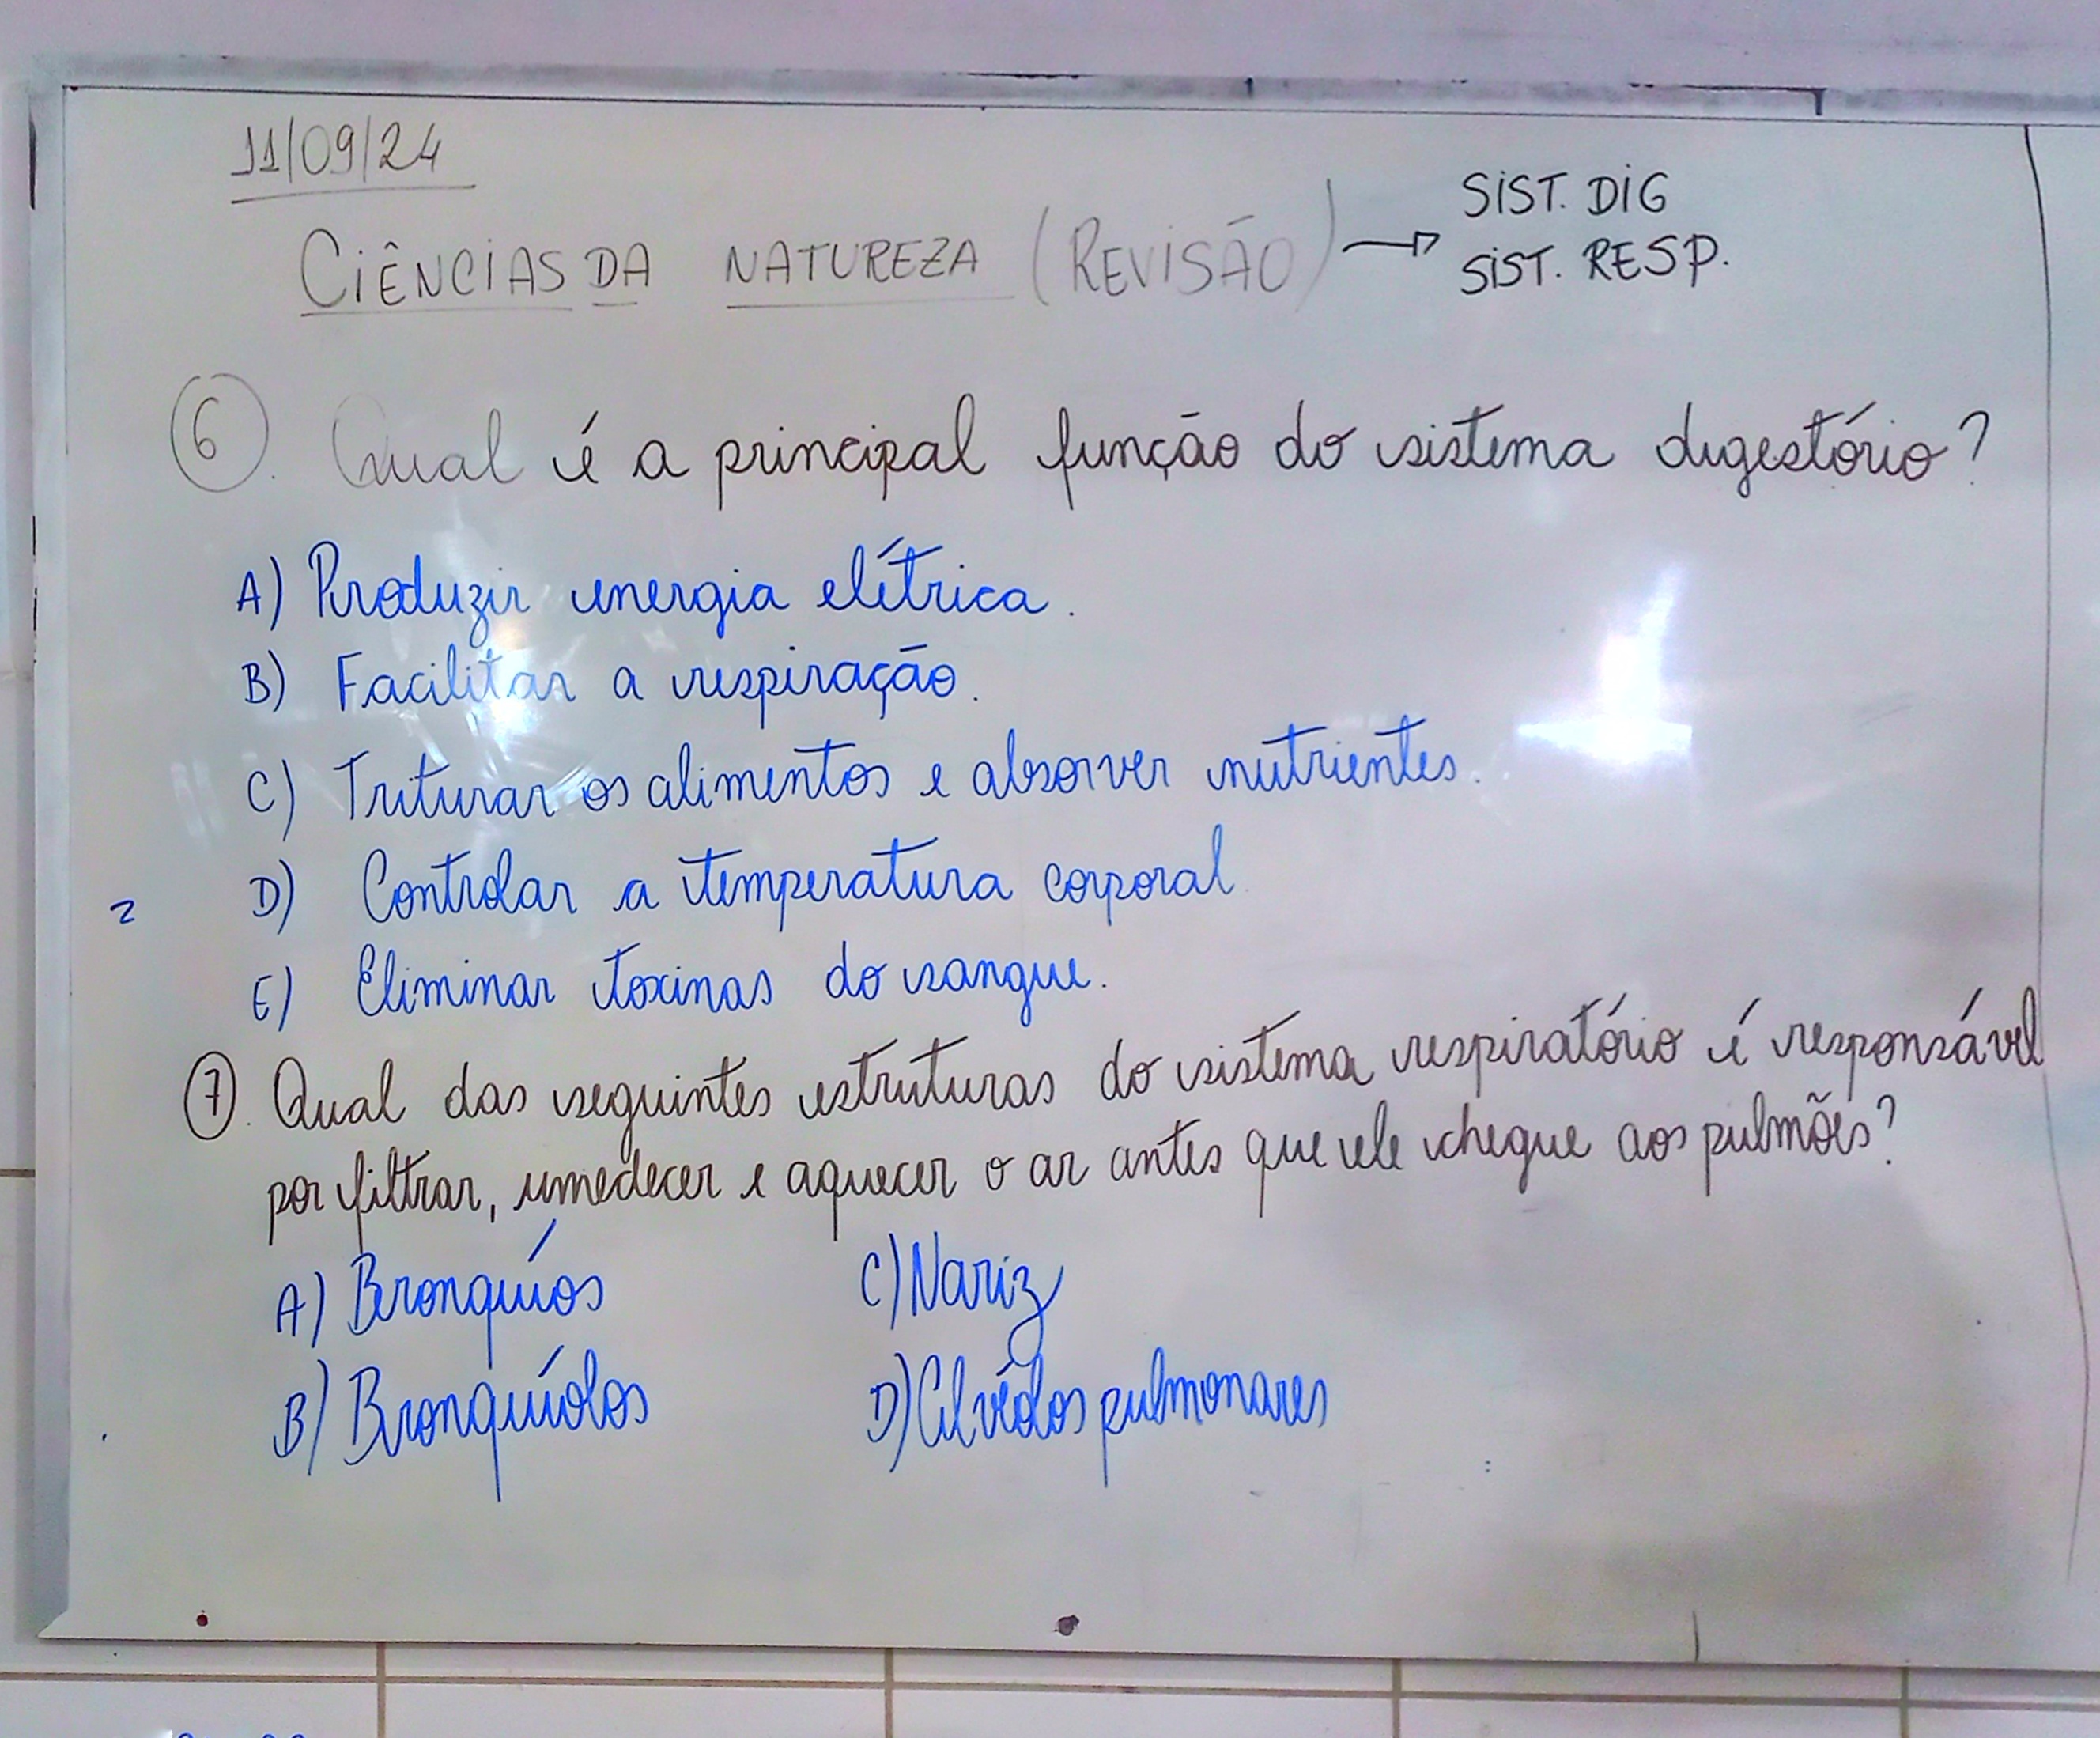 11/09/24
SIST. DIG
CIÊNCIAS DA NATUREZA (REVISÃO) → SIST. RESP.
6. Qual é a principal função do sistema digestório?
A) Produzir energia elétrica.
B) Facilitar a respiração.
C) Triturar os alimentos e absorver nutrientes.
D) Controlar a temperatura corporal.
E) Eliminar toxinas do sangue.
7. Qual das seguintes estruturas do sistema respiratório é responsável
por filtrar, umedecer e aquecer o ar antes que ele chegue aos pulmões?
A) Bronquíos C) Nariz
B) Bronquíolos D) Alvéolos pulmonares